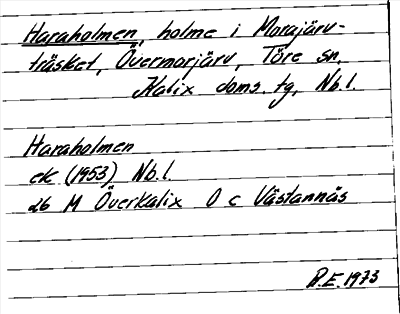 Haraholmen, holme i Morajärv-
träsket, Övermorjärv, Töre sn,
Kalix doms. tg, Nb.l.
Haraholmen
ek (1953) Nb.l.
26 M Överkalix O c Västannäs
R.E. 1973